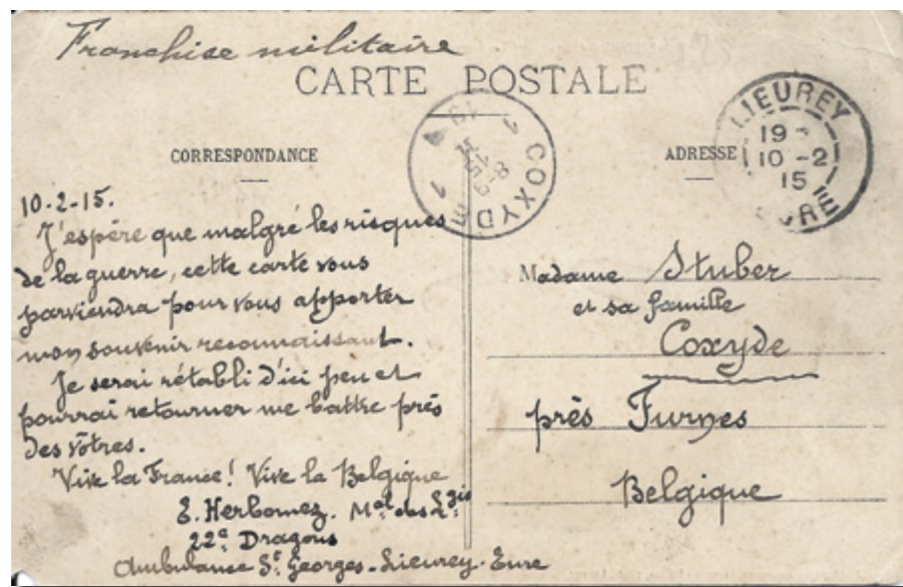 Franchise militaire
CARTE POSTALE
CORRESPONDANCE
ADRESSE
LIEUREY
19
10 -2
15
EURE
COXYDE
10-2-15.
J'espére que malgré les risques
de la guerre, cette carte vous
parviendra pour vous apporter
mon souvenir reconnaissant.
Je serai rétabli d'ici peu et
pourrai retourner me battre près
des vôtres.
Vive la France! Vive la Belgique
E. Herbomez. Mal des Lgis
22e Dragons
Ambulance St Georges - Lieurey - Eure
Madame Stuber
et sa famille
Coxyde
près Furnes
Belgique